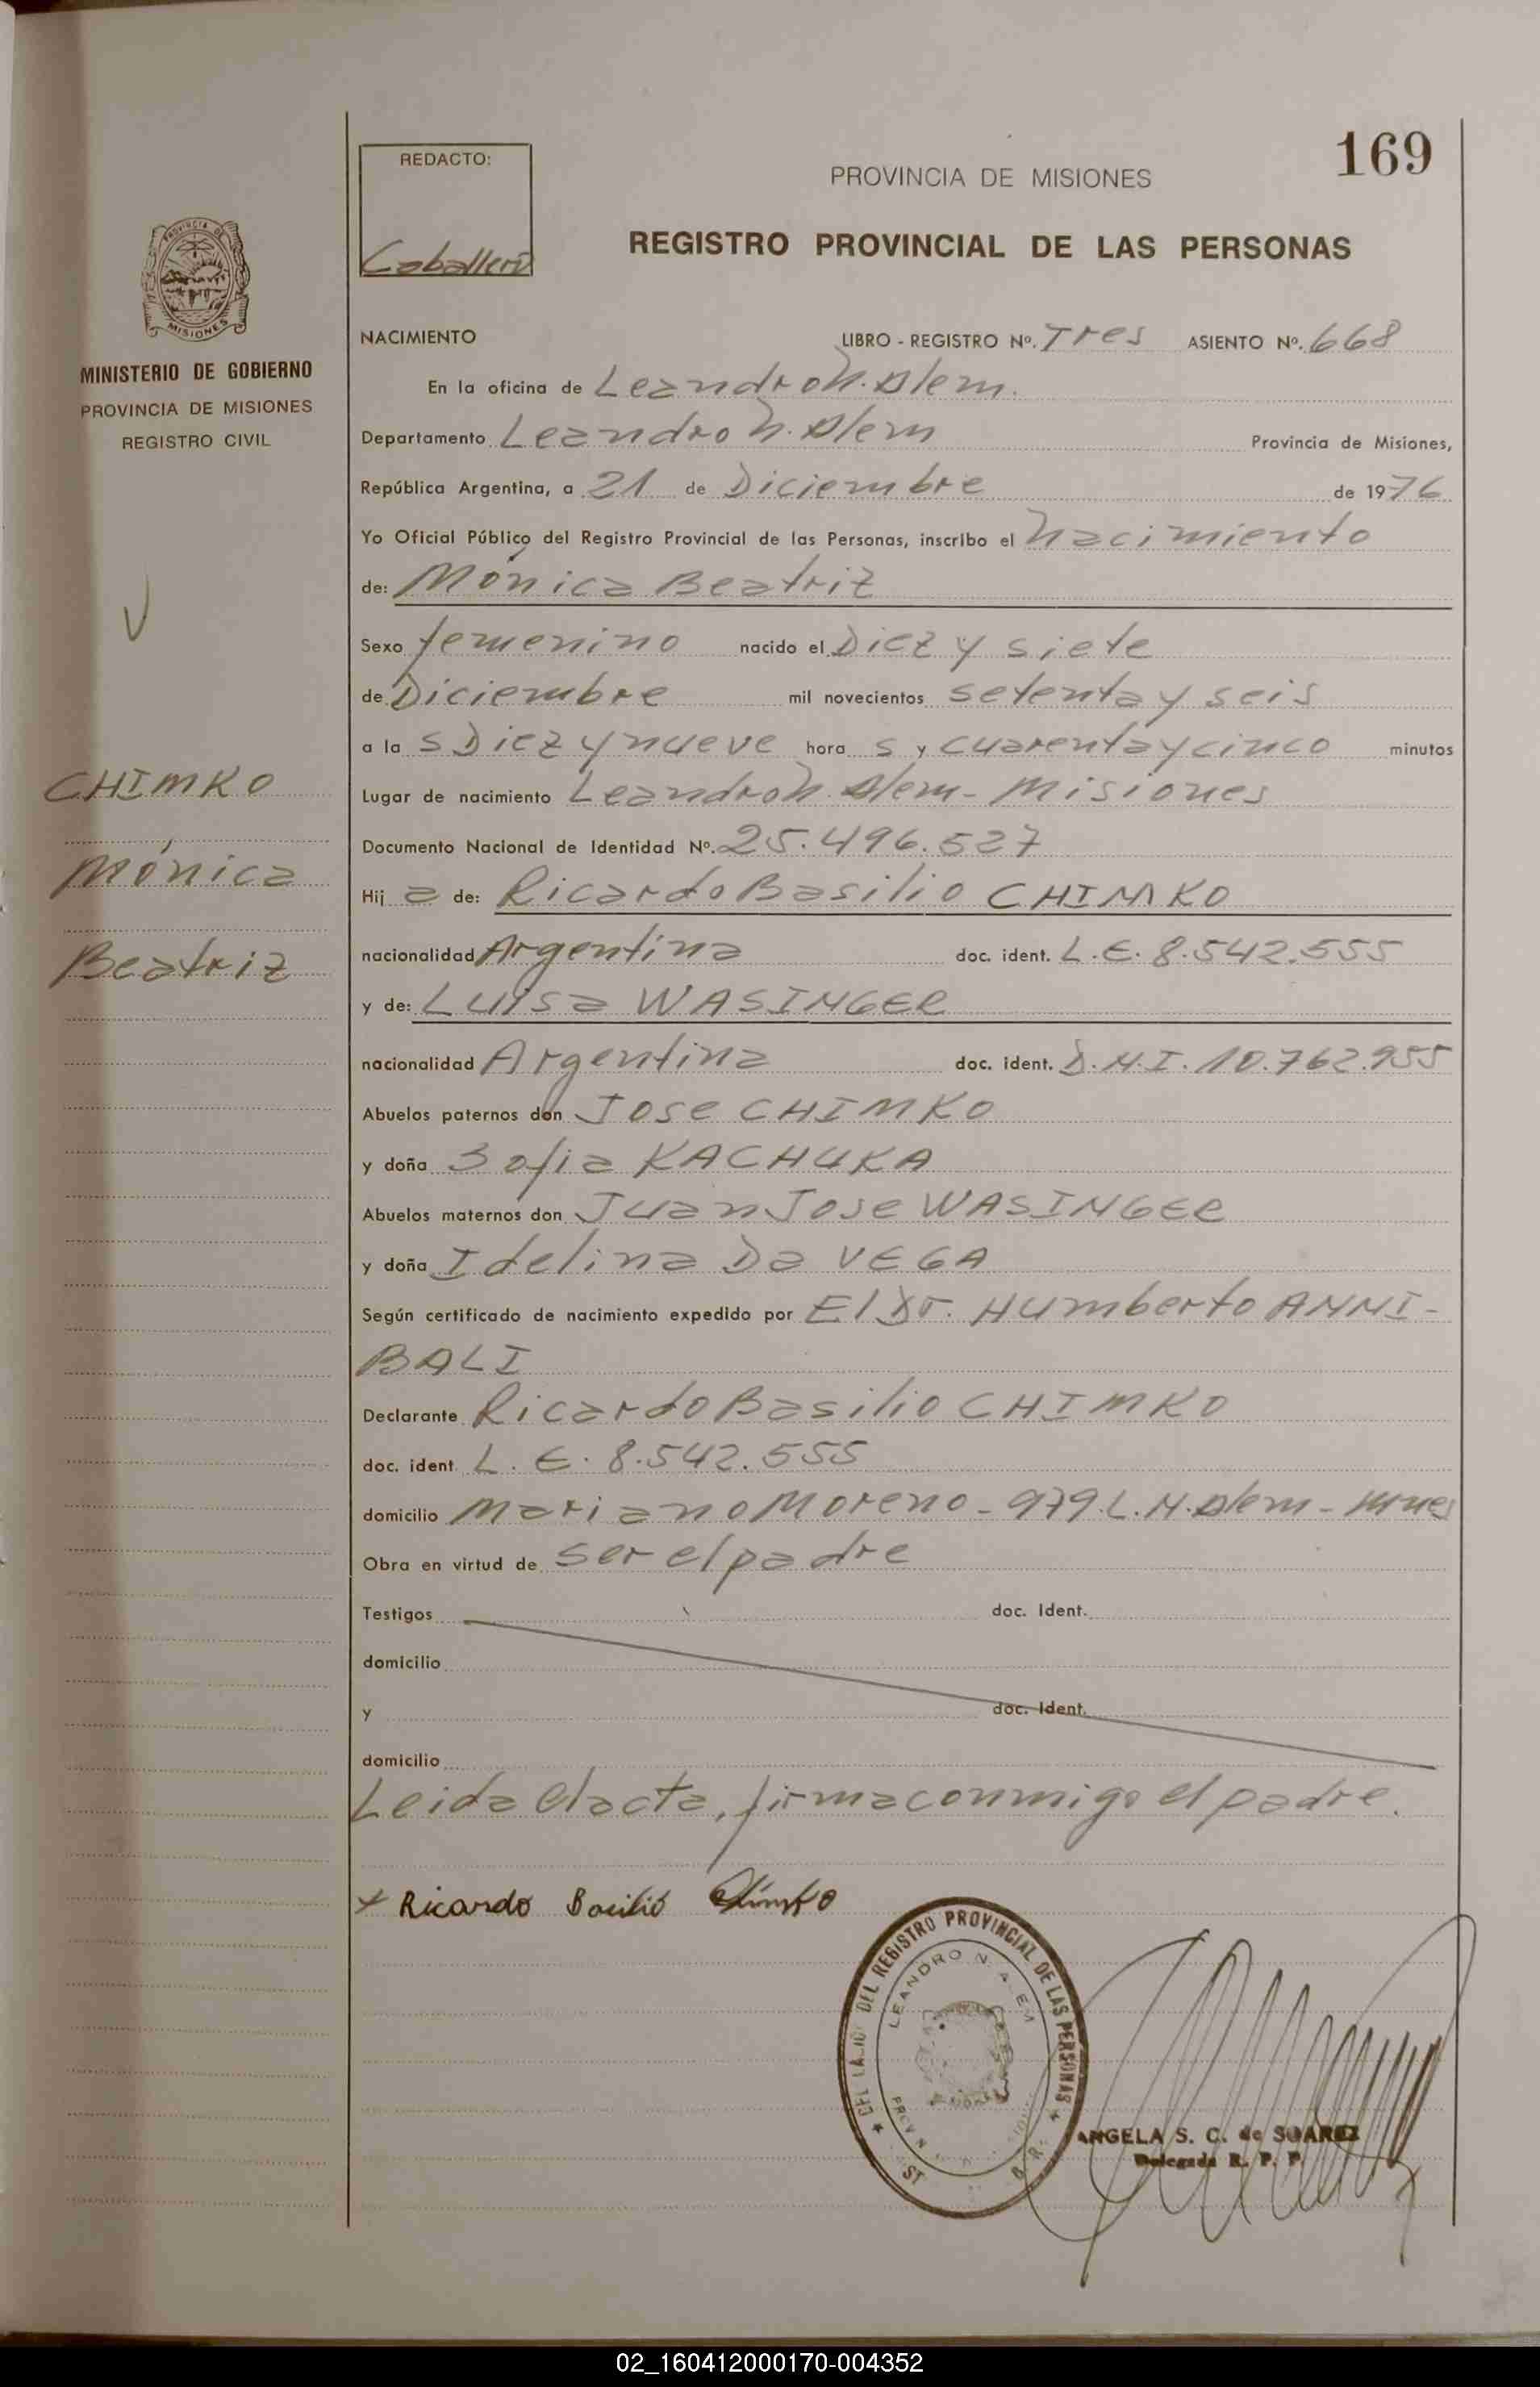 169
REDACTO:
Caballero
PROVINCIA DE MISIONES
REGISTRO PROVINCIAL DE LAS PERSONAS
PROVINCIA DE
MISIONES
MINISTERIO DE GOBIERNO
PROVINCIA DE MISIONES
REGISTRO CIVIL
CHIMKO
Mónica
Beatriz
NACIMIENTO LIBRO - REGISTRO Nº. Tres ASIENTO Nº. 668
En la oficina de Leandro N. Alem.
Departamento Leandro N. Alem Provincia de Misiones,
República Argentina, a 21 de Diciembre de 1976
Yo Oficial Público del Registro Provincial de las Personas, inscribo el Nacimiento
de: Mónica Beatriz
Sexo femenino nacido el Diez y siete
de Diciembre mil novecientos setenta y seis
a la s Diez y nueve hora s y cuarenta y cinco minutos
Lugar de nacimiento Leandro N. Alem - Misiones
Documento Nacional de Identidad Nº. 25.496.527
Hij a de: Ricardo Basilio CHIMKO
nacionalidad Argentina doc. ident. L.E. 8.542.555
y de: Luisa WASINGER
nacionalidad Argentina doc. ident. D.N.I. 10.762.955
Abuelos paternos don Jose CHIMKO
y doña Sofia KACHUKA
Abuelos maternos don Juan Jose WASINGER
y doña Idelina Da VEGA
Según certificado de nacimiento expedido por El Dr. Humberto ANNI-
BALI
Declarante Ricardo Basilio CHIMKO
doc. ident. L.E. 8.542.555
domicilio Mariano Moreno - 979. L.N. Alem - Mnes
Obra en virtud de ser el padre
Testigos doc. Ident.
domicilio
y doc. Ident.
domicilio
Leida el acta, firma conmigo el padre.
x Ricardo Basilio Chimko
DEL REGISTRO PROVINCIAL DE LAS PERSONAS
LEANDRO N. ALEM
ANGELA S. C. de SOAREZ
Delegada R. P. P.
02_160412000170-004352